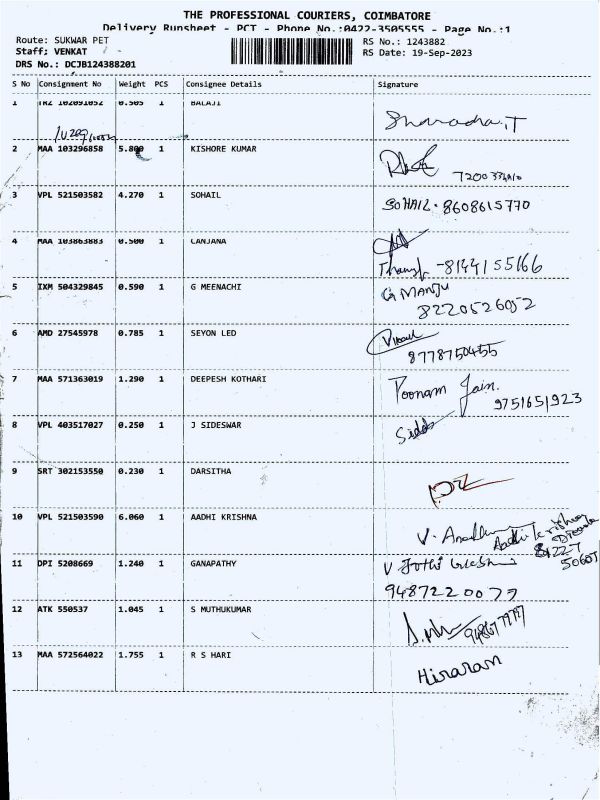 THE PROFESSIONAL COURIERS, COIMBATORE
Delivery Runsheet - PCT - Phone No.:0422-3505555 - Page No.:1
Route: SUKWAR PET
RS No.: 1243882
Staff: VENKAT
RS Date: 19-Sep-2023
DRS No.: DCJB124388201
S No Consignment No Weight PCS Consignee Details Signature
1 0.505 1 BALAJI
Sharadha.T
2 MAA 103296858 5.800 1 KISHORE KUMAR
3 VPL 521503582 4.270 1 SOHAIL SOHAIL. 8608615770
4 MAA 103863883 0.500 1 CANJANA
8144155166
5 IXM 504329845 0.590 1 G MEENACHI G MANJU
8220526052
6 AMD 27545978 0.785 1 SEYON LED
8778750455
7 MAA 571363019 1.290 1 DEEPESH KOTHARI Poonam Jain.
9751651923
8 VPL 403517027 0.250 1 J SIDESWAR
9 SRT 302153550 0.230 1 DARSITHA
10 VPL 521503590 6.060 1 AADHI KRISHNA
11 DPI 5208669 1.240 1 GANAPATHY
9487220077
12 ATK 550537 1.045 1 S MUTHUKUMAR
13 MAA 572564022 1.755 1 R S HARI